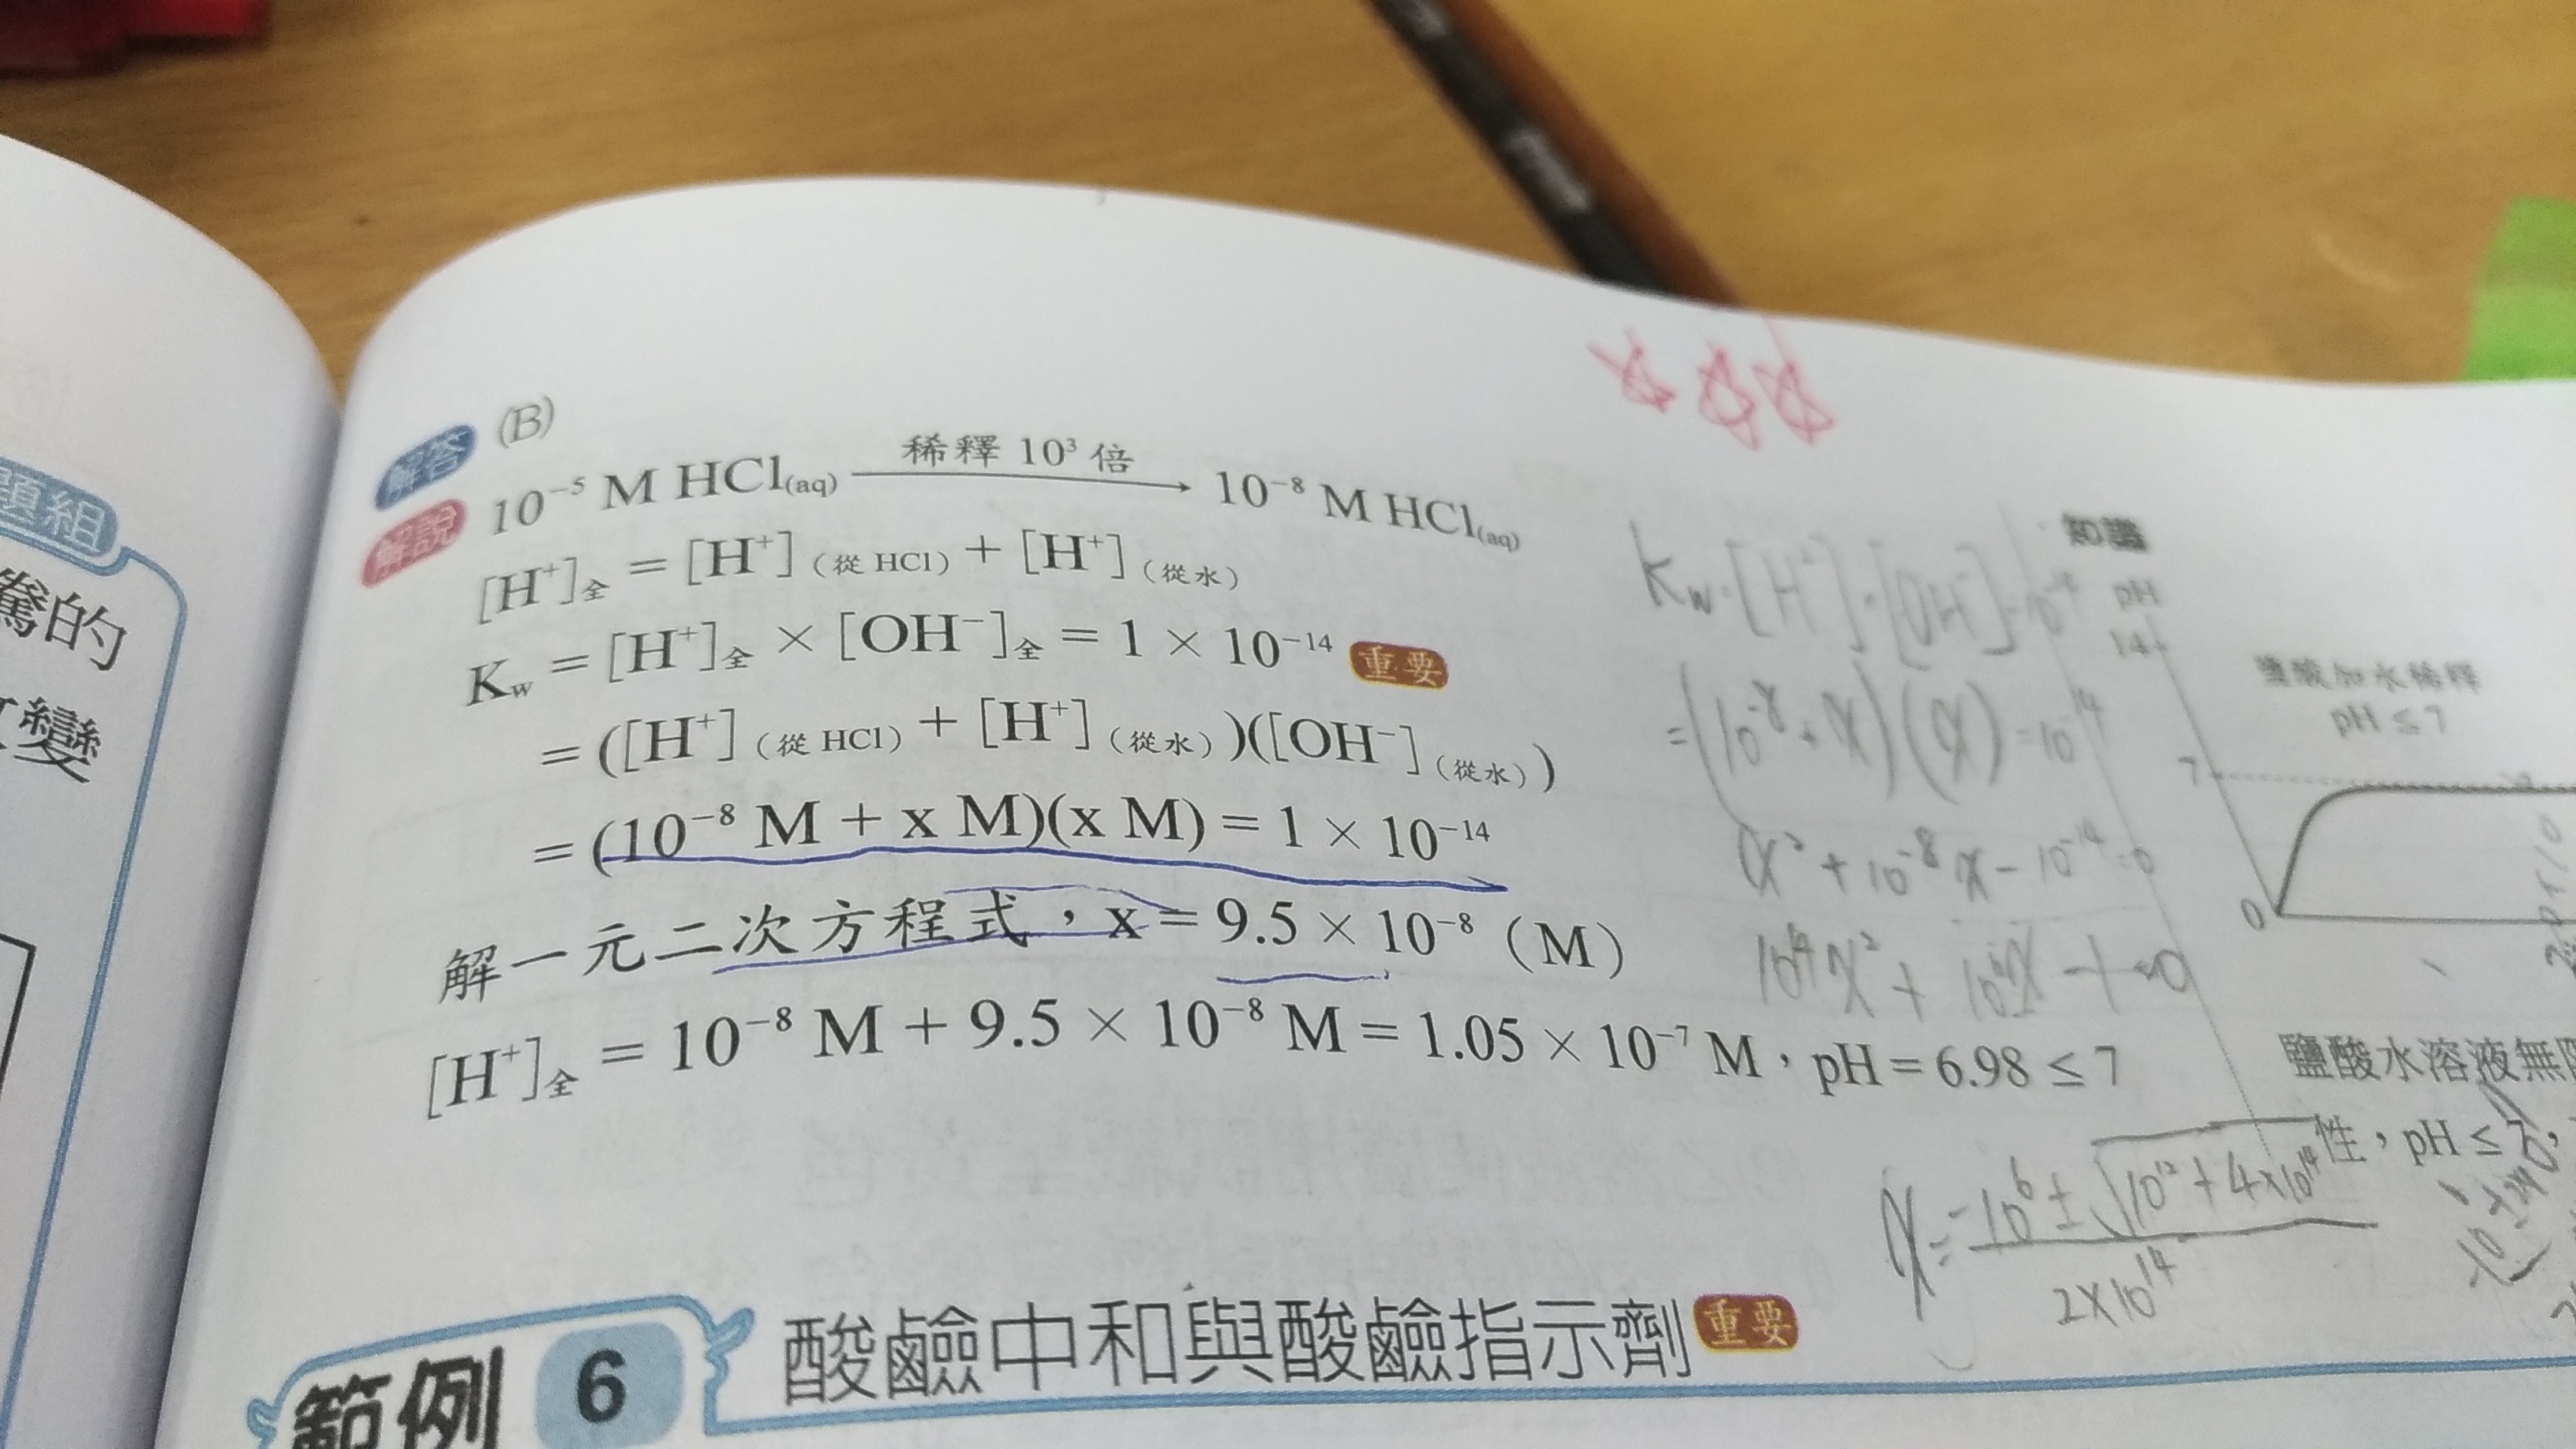 題組
驚的
變
解答 (B)
解說 10⁻⁵ M HCl(aq) 稀釋 10³ 倍 → 10⁻⁸ M HCl(aq)
[H⁺]全 = [H⁺](從 HCl) + [H⁺](從水)
Kw = [H⁺]全 × [OH⁻]全 = 1 × 10⁻¹⁴ 重要
= ([H⁺](從 HCl) + [H⁺](從水))([OH⁻](從水))
= (10⁻⁸ M + x M)(x M) = 1 × 10⁻¹⁴
解一元二次方程式，x = 9.5 × 10⁻⁸ (M)
[H⁺]全 = 10⁻⁸ M + 9.5 × 10⁻⁸ M = 1.05 × 10⁻⁷ M，pH = 6.98 ≤ 7
Kw = [H⁺]·[OH⁻] = 10⁻¹⁴
= (10⁻⁸ + x)(x) = 10⁻¹⁴
x² + 10⁻⁸ x − 10⁻¹⁴ = 0
10¹⁴x² + 10⁶x − 1 = 0
x = −10⁶ ± √10¹² + 4×10¹⁴
2×10¹⁴
知識
pH
14
鹽酸加水稀釋
pH ≤ 7
7
0
鹽酸水溶液無
性，pH ≤ 7，
範例 6 酸鹼中和與酸鹼指示劑 重要